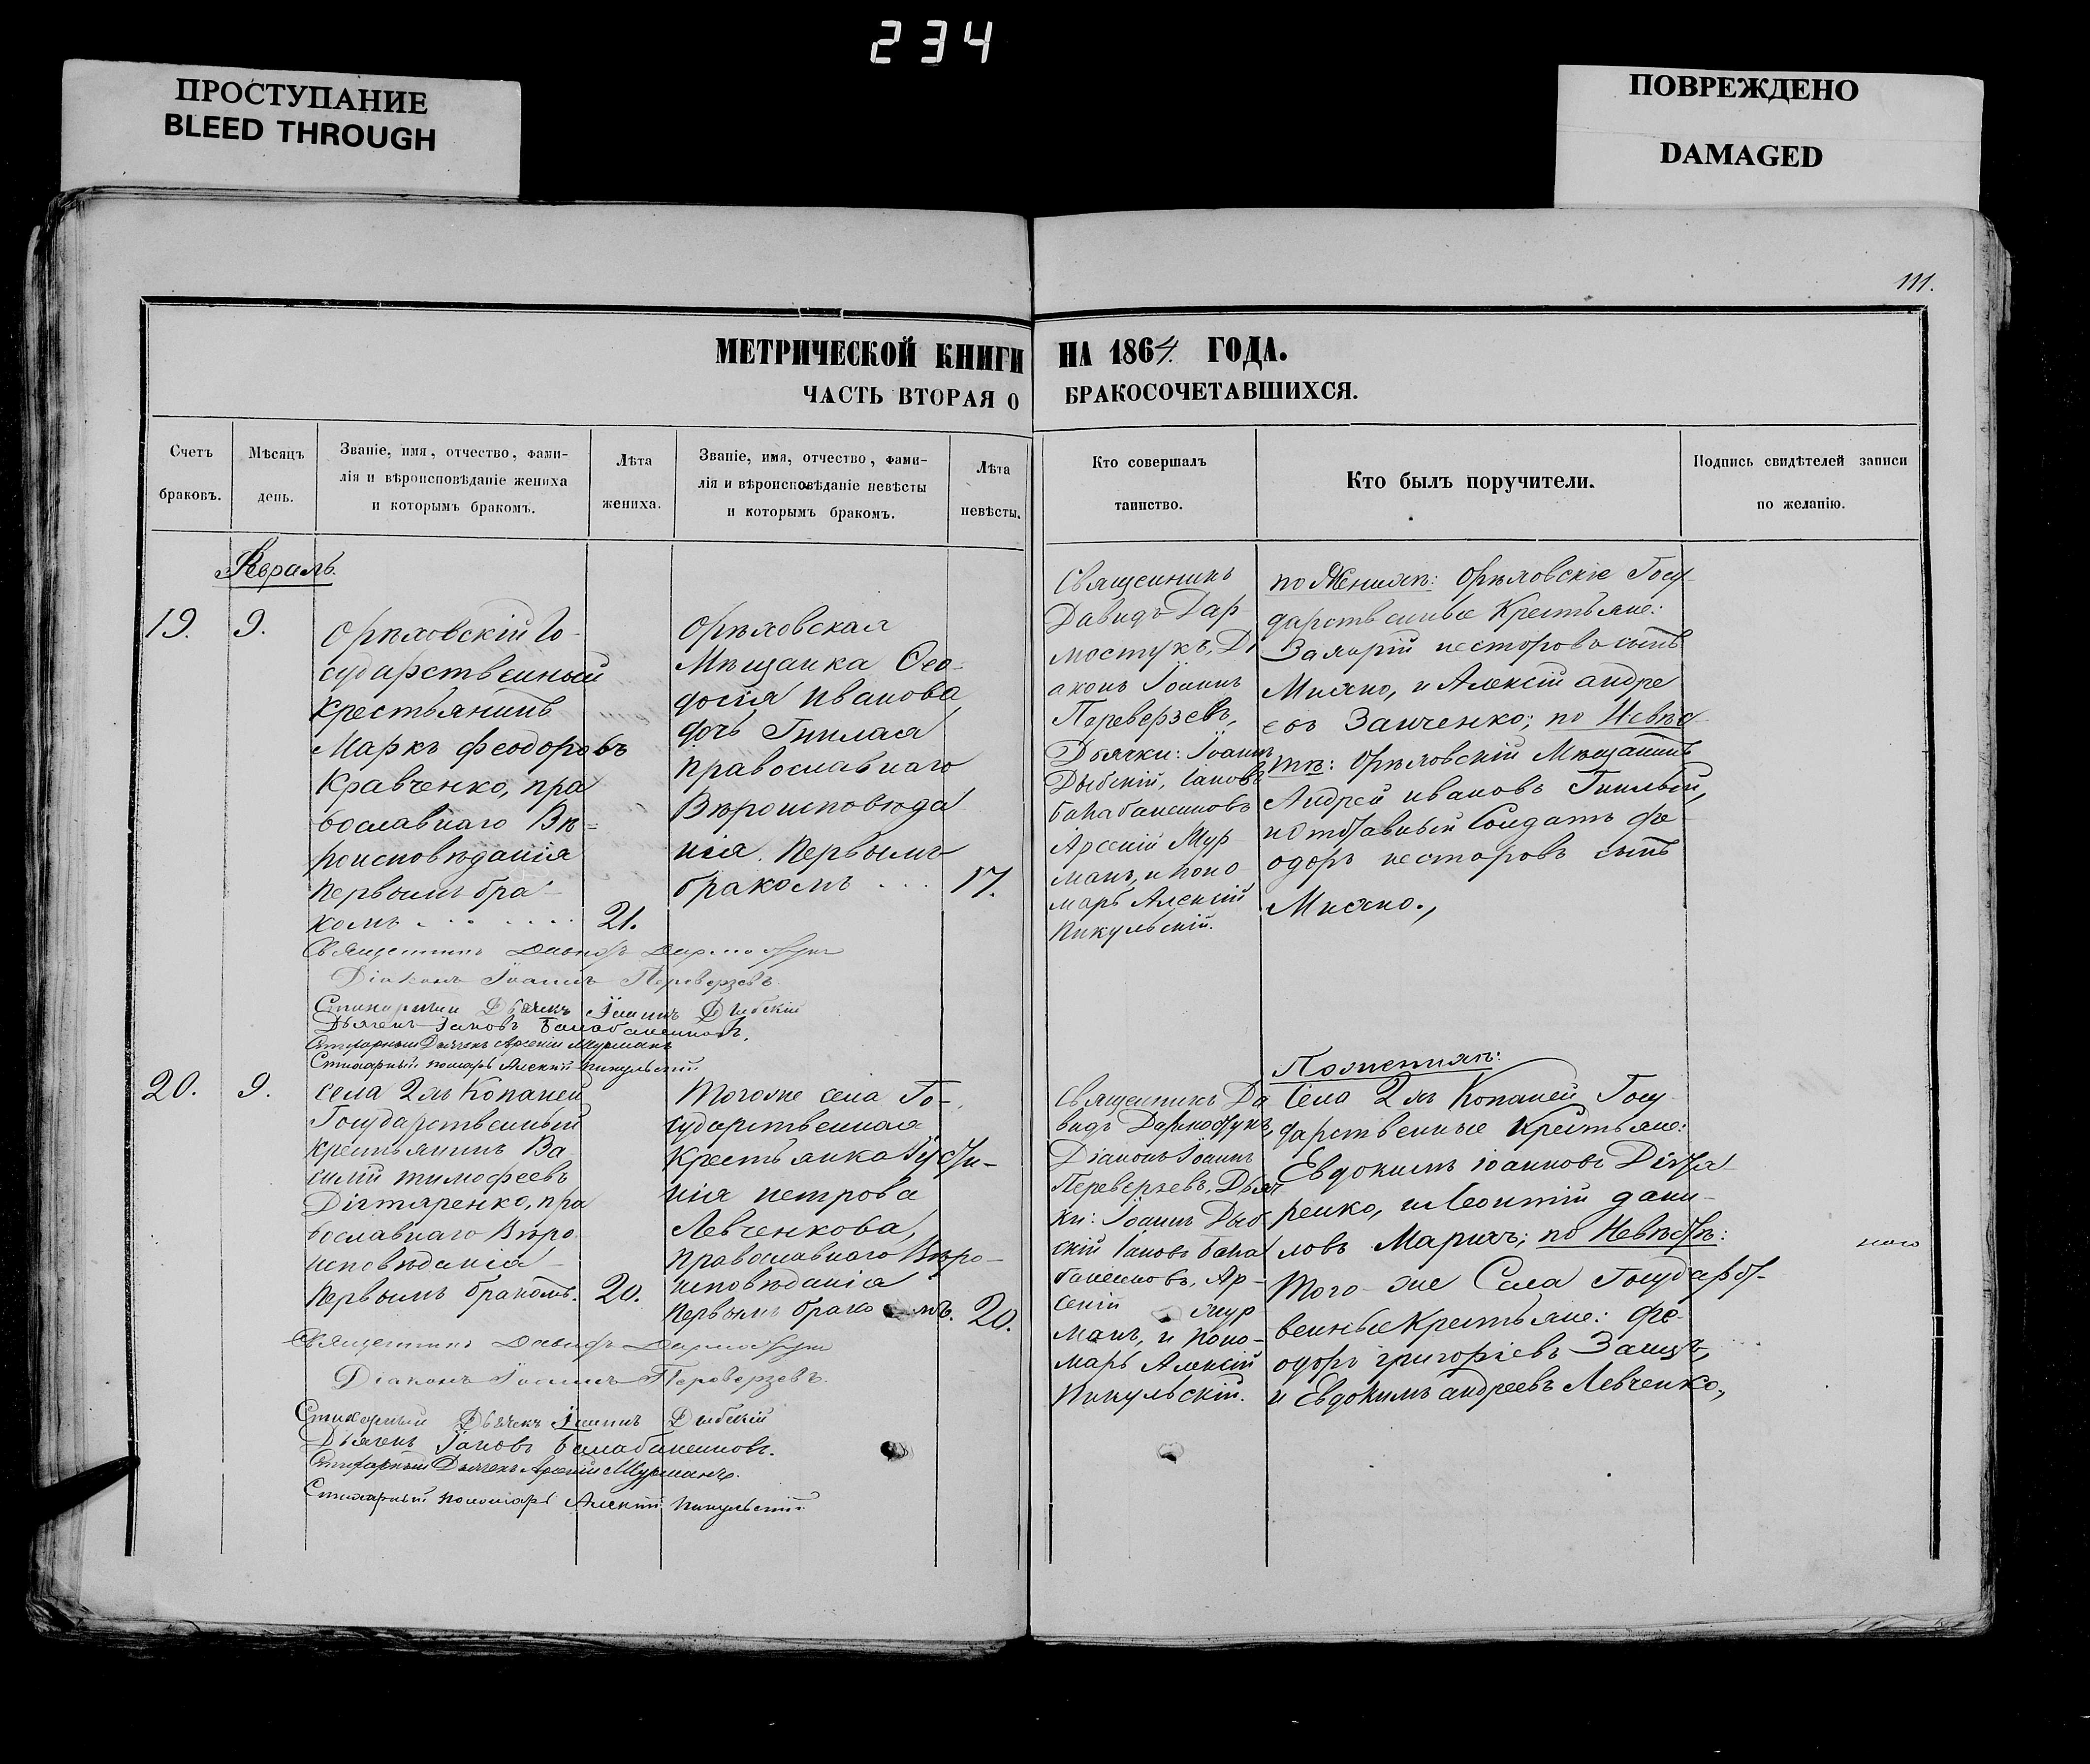 234
ПРОСТУПАНИЕ
BLEED THROUGH
ПОВРЕЖДЕНО
DAMAGED
111.
МЕТРИЧЕСКОЙ КНИГИ НА 1864. ГОДА.
ЧАСТЬ ВТОРАЯ О БРАКОСОЧЕТАВШИХСЯ.
Счетъ
браковъ.
Мѣсяцъ
день.
Званіе, имя, отчество, фами-
лія и вѣроисповѣданіе жениха
и которымъ бракомъ.
Лѣта
жениха.
Званіе, имя, отчество, фами-
лія и вѣроисповѣданіе невѣсты
и которымъ бракомъ.
Лѣта
невѣсты.
Кто совершалъ
таинство.
Кто былъ поручители.
Подпись свидѣтелей записи
по желанію.
19.
9.
Орѣховскій Го-
сударственный
Крестьянинъ
Маркъ Феодоровъ
Кравченко, пра
вославнаго Вѣ=
роисповѣданія
первымъ бра-
комъ
21.
Орѣховская
Мѣщанка Ѳео-
досія Иванова
дочь Гнилая
православнаго
Вѣроисповѣда
нія. Первымъ
бракомъ
17.
Священникъ
Давидъ Дар-
мостукъ, Ді
аконъ Іоаннъ
Переверзевъ,
Дьячки: Іоаннъ
Дыбскій, Іаковъ
Арсеній Мур
манъ, и Поно
марь Алексій
Пикульскій.
по Женихѣ: Орѣховскіе Госу-
дарственные Крестьяне:
Захарій Несторовъ сынъ
и Алексій Андре
евъ Заиченко; по Невѣс-
тѣ: Орѣховскій Мѣщанинъ
Андрей Ивановъ Гнилый,
и отставный Солдатъ Фе-
одоръ Несторовъ сынъ
Священникъ Давидъ Дармостукъ
Діаконъ Іоаннъ Переверзевъ.
Стихарный Дьячекъ Іоаннъ Дыбскій
Дьячекъ Іаковъ
Стихарный Дьячекъ Арсеній Мурманъ
Стихарный пономарь Алексій Пикульскій
20.
9.
Села 2хъ Копаней
Государственный
крестьянинъ Ва
силій Тимофеевъ
Дігтяренко, пра
вославнаго Вѣро
исповѣданія
Первымъ бракомъ.
20.
Тогоже села Го-
сударственная
Крестьянка Іусти-
нія Петрова
Левченкова,
Православнаго Вѣро-
исповѣданія
Первымъ бракомъ.
20.
Священникъ Да
видъ Дармостукъ,
Діаконъ Іоаннъ
Переверзевъ, Дьяч
ки: Іоаннъ Дыб
скій Іаковъ
Ар-
сеній Мур
манъ, и Поно-
марь Алексій
Пикульскій.
По женихѣ:
Села 2хъ Копаней Госу-
дарственные Крестьяне:
Евдокимъ Іоанновъ Дігтя
ренко, и Леонтій Дани-
ловъ по Невѣстѣ:
Того-же Села Государст-
венные Крестьяне: Фе-
одоръ Григорьевъ Заицъ,
и Евдокимъ Андреевъ Левченко,
Священникъ Давидъ Дармостукъ
Діаконъ Іоаннъ Переверзевъ.
Стихарный Дьячекъ Іоаннъ Дыбскій
Дьячекъ Іаковъ
Стихарный Дьячекъ Арсеній Мурманъ.
Стихарный Пономарь Алексій Пикульскій